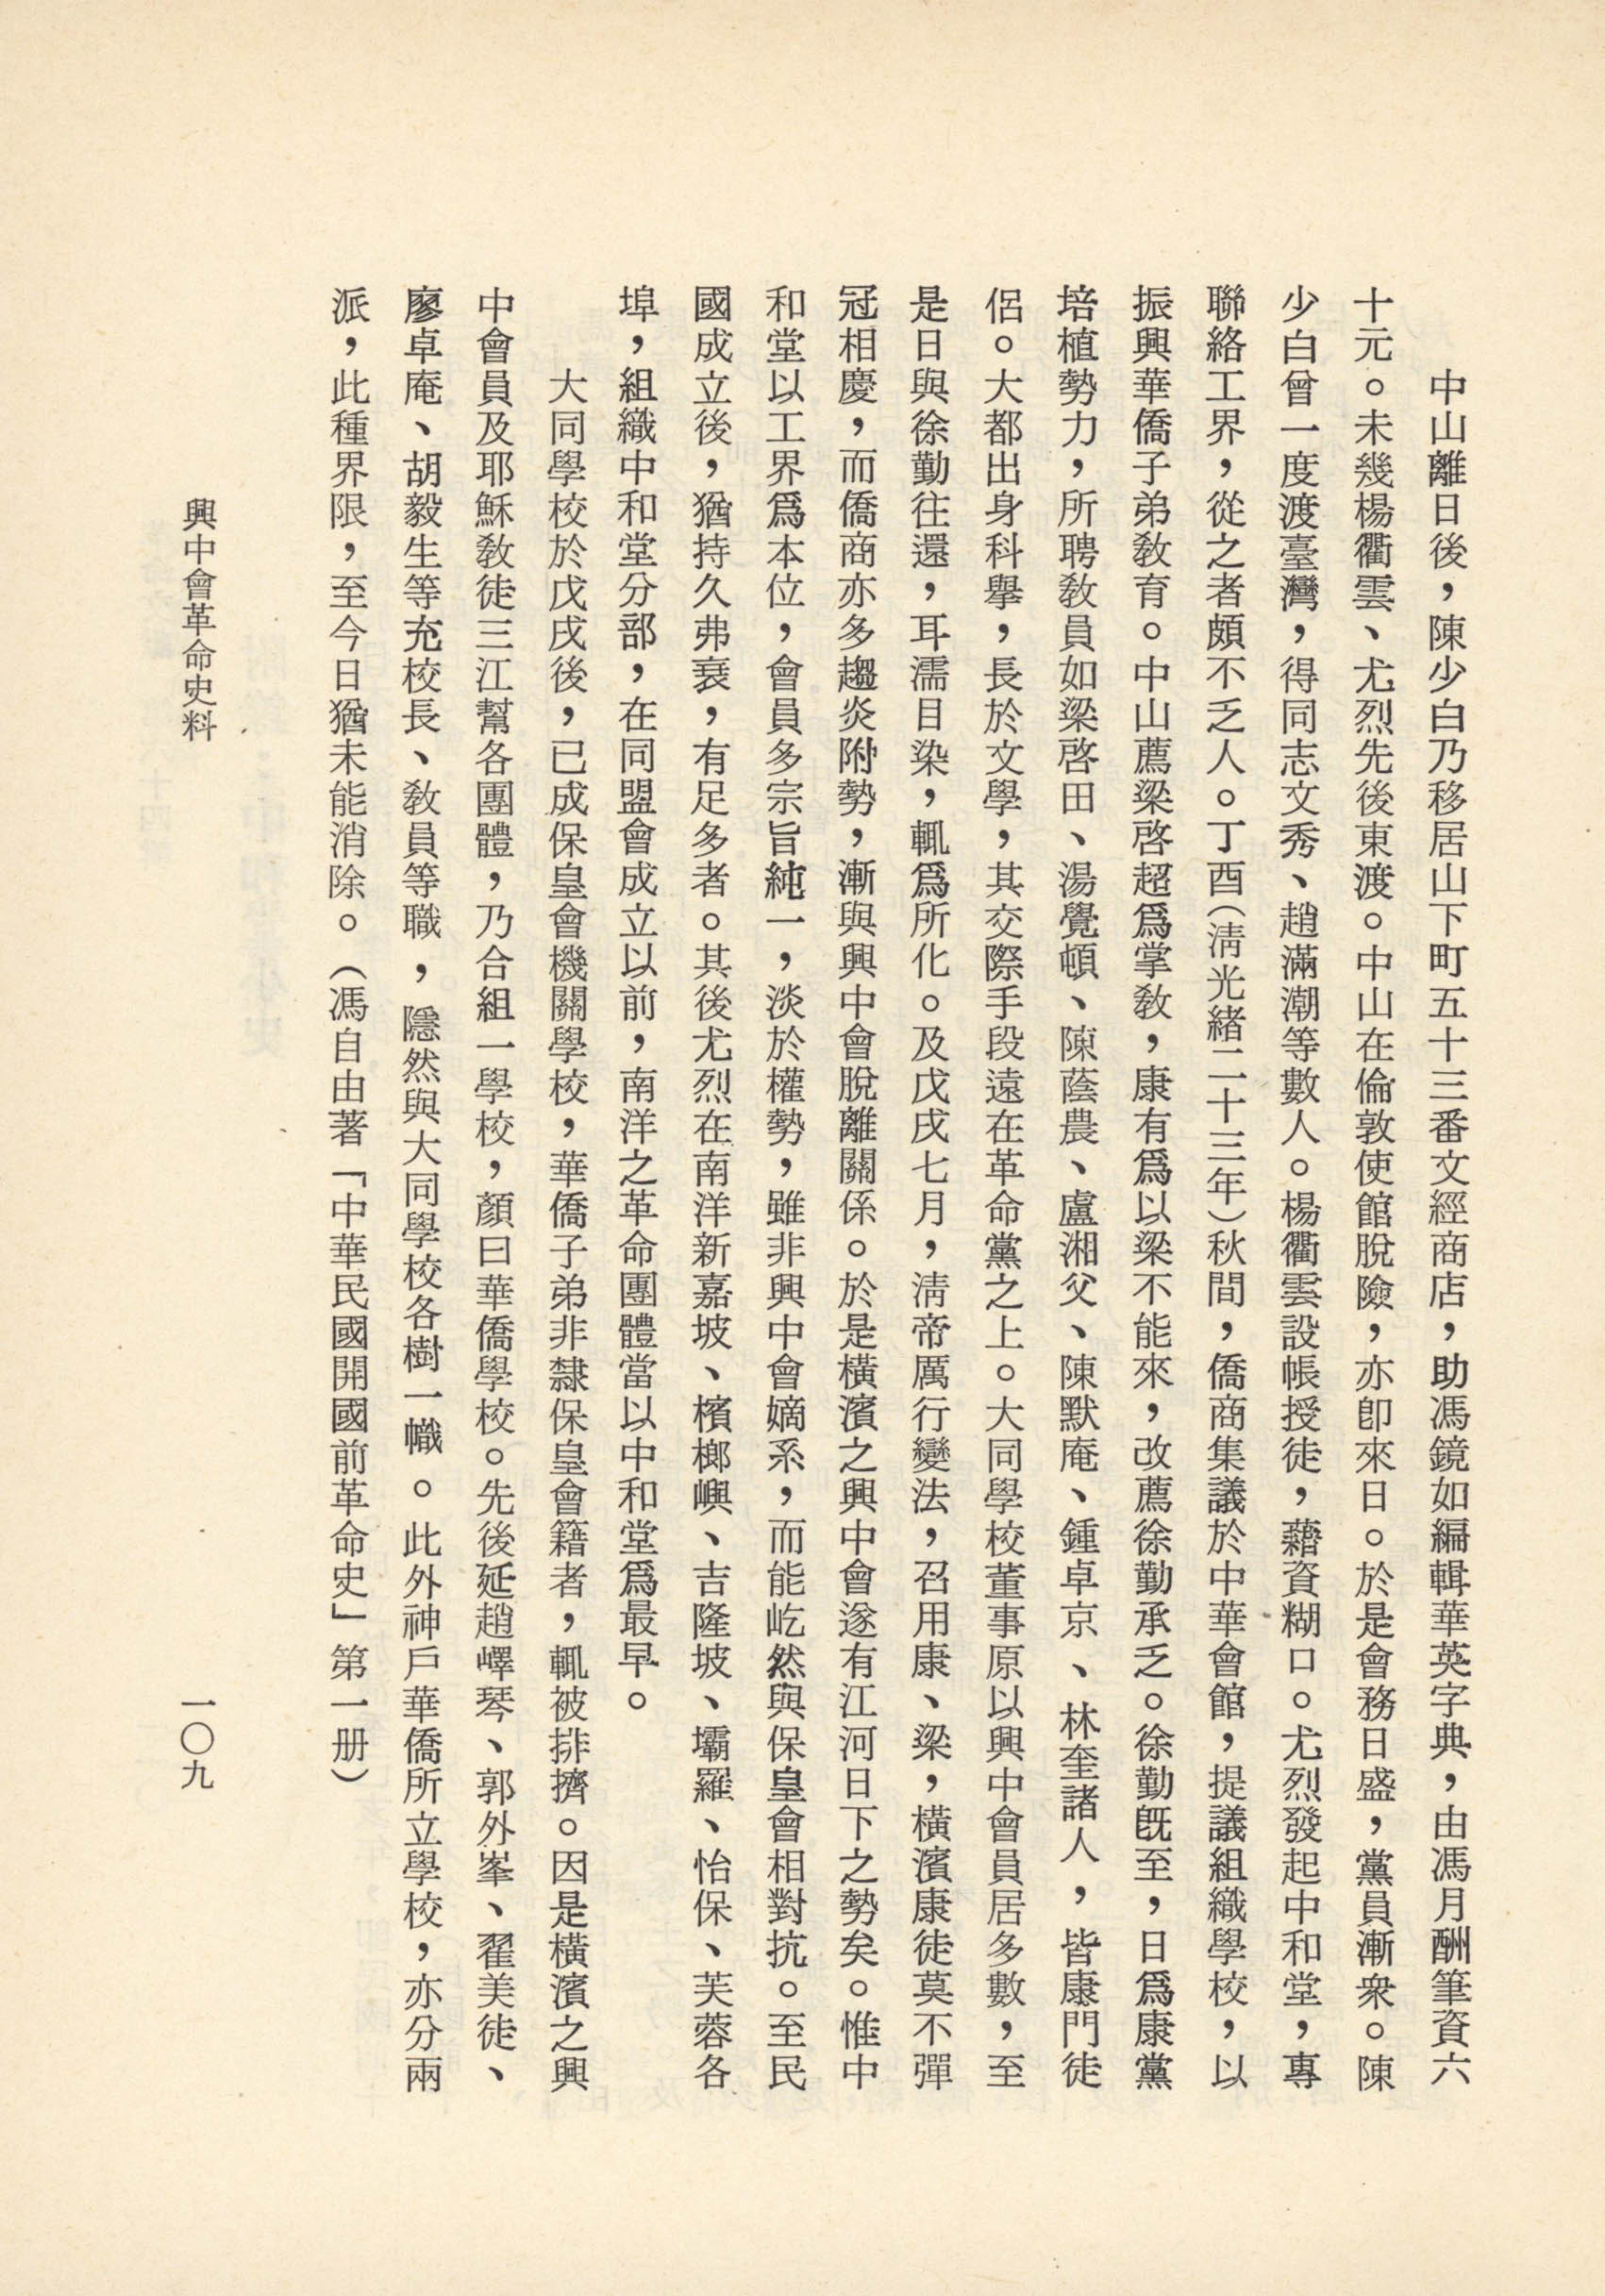 中山離日後，陳少白乃移居山下町五十三番文經商店，助馮鏡如編輯華英字典，由馮月酬筆資六
十元。未幾楊衢雲、尤烈先後東渡。中山在倫敦使館脫險，亦卽來日。於是會務日盛，黨員漸衆。陳
少白曾一度渡臺灣，得同志文秀、趙滿潮等數人。楊衢雲設帳授徒，藉資糊口。尤烈發起中和堂，專
聯絡工界，從之者頗不乏人。丁酉（淸光緖二十三年）秋間，僑商集議於中華會館，提議組織學校，以
振興華僑子弟敎育。中山薦梁啓超爲掌敎，康有爲以梁不能來，改薦徐勤承乏。徐勤旣至，日爲康黨
培植勢力，所聘敎員如梁啓田、湯覺頓、陳蔭農、盧湘父、陳默庵、鍾卓京、林奎諸人，皆康門徒
侶。大都出身科擧，長於文學，其交際手段遠在革命黨之上。大同學校董事原以興中會員居多數，至
是日與徐勤往還，耳濡目染，輒爲所化。及戊戌七月，淸帝厲行變法，召用康、梁，橫濱康徒莫不彈
冠相慶，而僑商亦多趨炎附勢，漸與興中會脫離關係。於是橫濱之興中會遂有江河日下之勢矣。惟中
和堂以工界爲本位，會員多宗旨純一，淡於權勢，雖非興中會嫡系，而能屹然與保皇會相對抗。至民
國成立後，猶持久弗衰，有足多者。其後尤烈在南洋新嘉坡、檳榔嶼、吉隆坡、壩羅、怡保、芙蓉各
埠，組織中和堂分部，在同盟會成立以前，南洋之革命團體當以中和堂爲最早。
大同學校於戊戌後，已成保皇會機關學校，華僑子弟非隸保皇會籍者，輒被排擠。因是橫濱之興
中會員及耶穌敎徒三江幫各團體，乃合組一學校，顏曰華僑學校。先後延趙嶧琴、郭外峯、翟美徒、
廖卓庵、胡毅生等充校長、敎員等職，隱然與大同學校各樹一幟。此外神戶華僑所立學校，亦分兩
派，此種界限，至今日猶未能消除。（馮自由著「中華民國開國前革命史」第一册）
興中會革命史料
一〇九